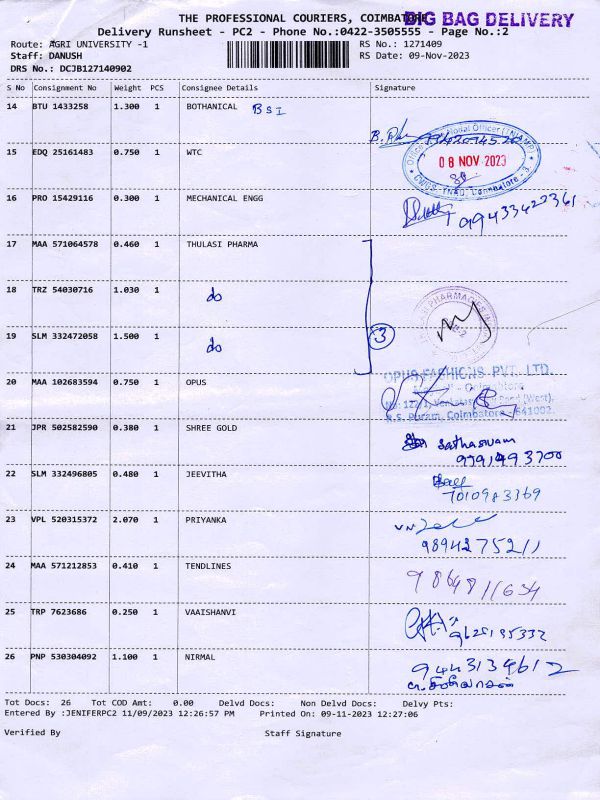 THE PROFESSIONAL COURIERS, COIMBATORE
BIG BAG DELIVERY
Delivery Runsheet - PC2 - Phone No.:0422-3505555 - Page No.:2
Route: AGRI UNIVERSITY -1
RS No.: 1271409
Staff: DANUSH
RS Date: 09-Nov-2023
DRS No.: DCJB127140902
S No Consignment No Weight PCS Consignee Details Signature
14 BTU 1433258 1.300 1 BOTHANICAL BSI
15 EDQ 25161483 0.750 1 WTC
08 NOV 2023
16 PRO 15429116 0.300 1 MECHANICAL ENGG
17 MAA 571064578 0.460 1 THULASI PHARMA
18 TRZ 54030716 1.030 1 do
19 SLM 332472058 1.500 1 do
3
20 MAA 102683594 0.750 1 OPUS
OPUS FASHIONS PVT. LTD.
R.S. Puram, Coimbatore - 641002.
21 JPR 502582590 0.380 1 SHREE GOLD
22 SLM 332496805 0.480 1 JEEVITHA
7010983369
23 VPL 520315372 2.070 1 PRIYANKA
9894275211
24 MAA 571212853 0.410 1 TENDLINES
25 TRP 7623686 0.250 1 VAAISHANVI
26 PNP 530304092 1.100 1 NIRMAL
9443139612
Tot Docs: 26 Tot COD Amt: 0.00 Delvd Docs: Non Delvd Docs: Delvy Pts:
Entered By :JENIFERPC2 11/09/2023 12:26:57 PM Printed On: 09-11-2023 12:27:06
Verified By Staff Signature